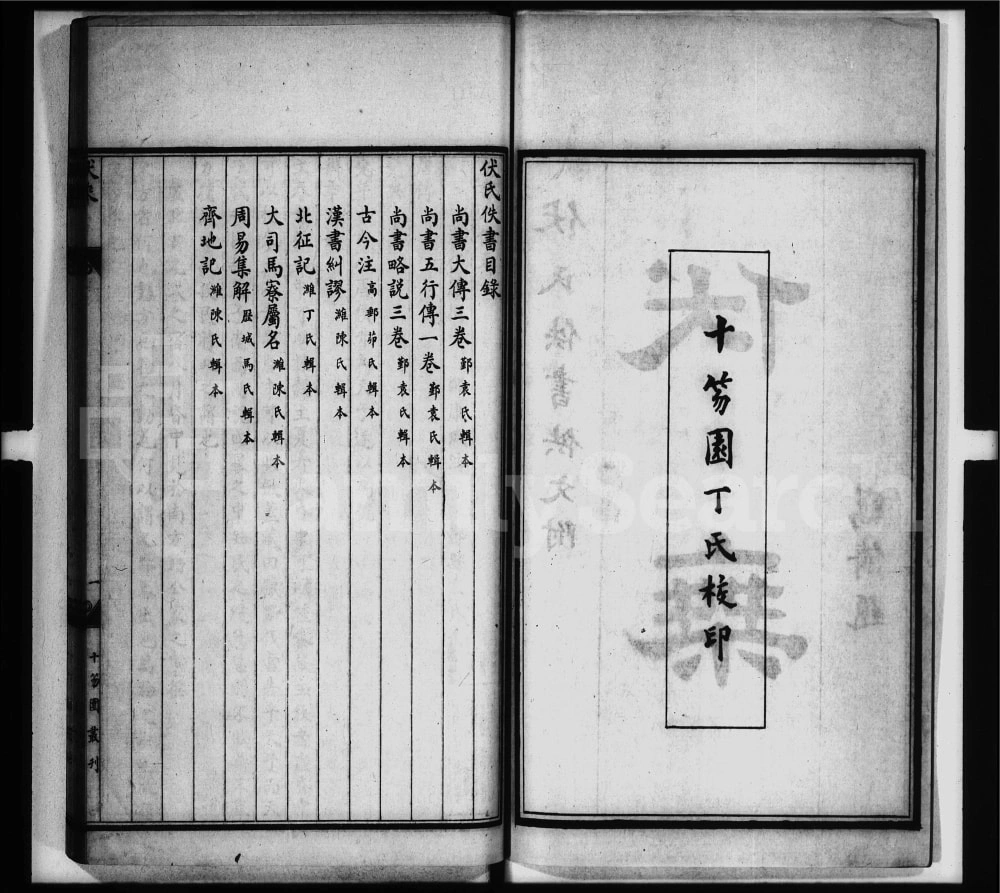 十笏園丁氏校印
伏氏佚書目錄
尚書大傳三卷 鄞袁氏輯本
尚書五行傳一卷 鄞袁氏輯本
尚書略説三卷 鄞袁氏輯本
古今注 高郵茆氏輯本
漢書糾謬 濰陳氏輯本
北征記 濰丁氏輯本
大司馬寮屬名 濰陳氏輯本
周易集解 歷城馬氏輯本
齊地記 濰陳氏輯本
一
十笏園叢刊
FamilySearch